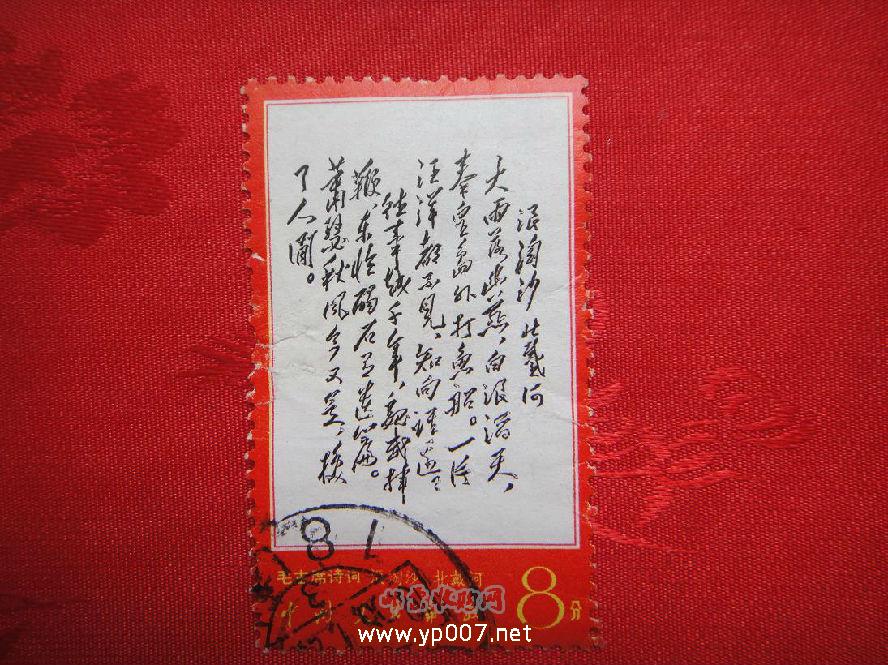 浪淘沙 北戴河
大雨落幽燕，白浪滔天，
秦皇岛外打鱼船。一片
汪洋都不见，知向谁边？
往事越千年，魏武挥
鞭，东临碣石有遗篇。
萧瑟秋风今又是，换
了人间。
毛主席诗词 浪淘沙 北戴河
中国人民邮政 8分
www.yp007.net